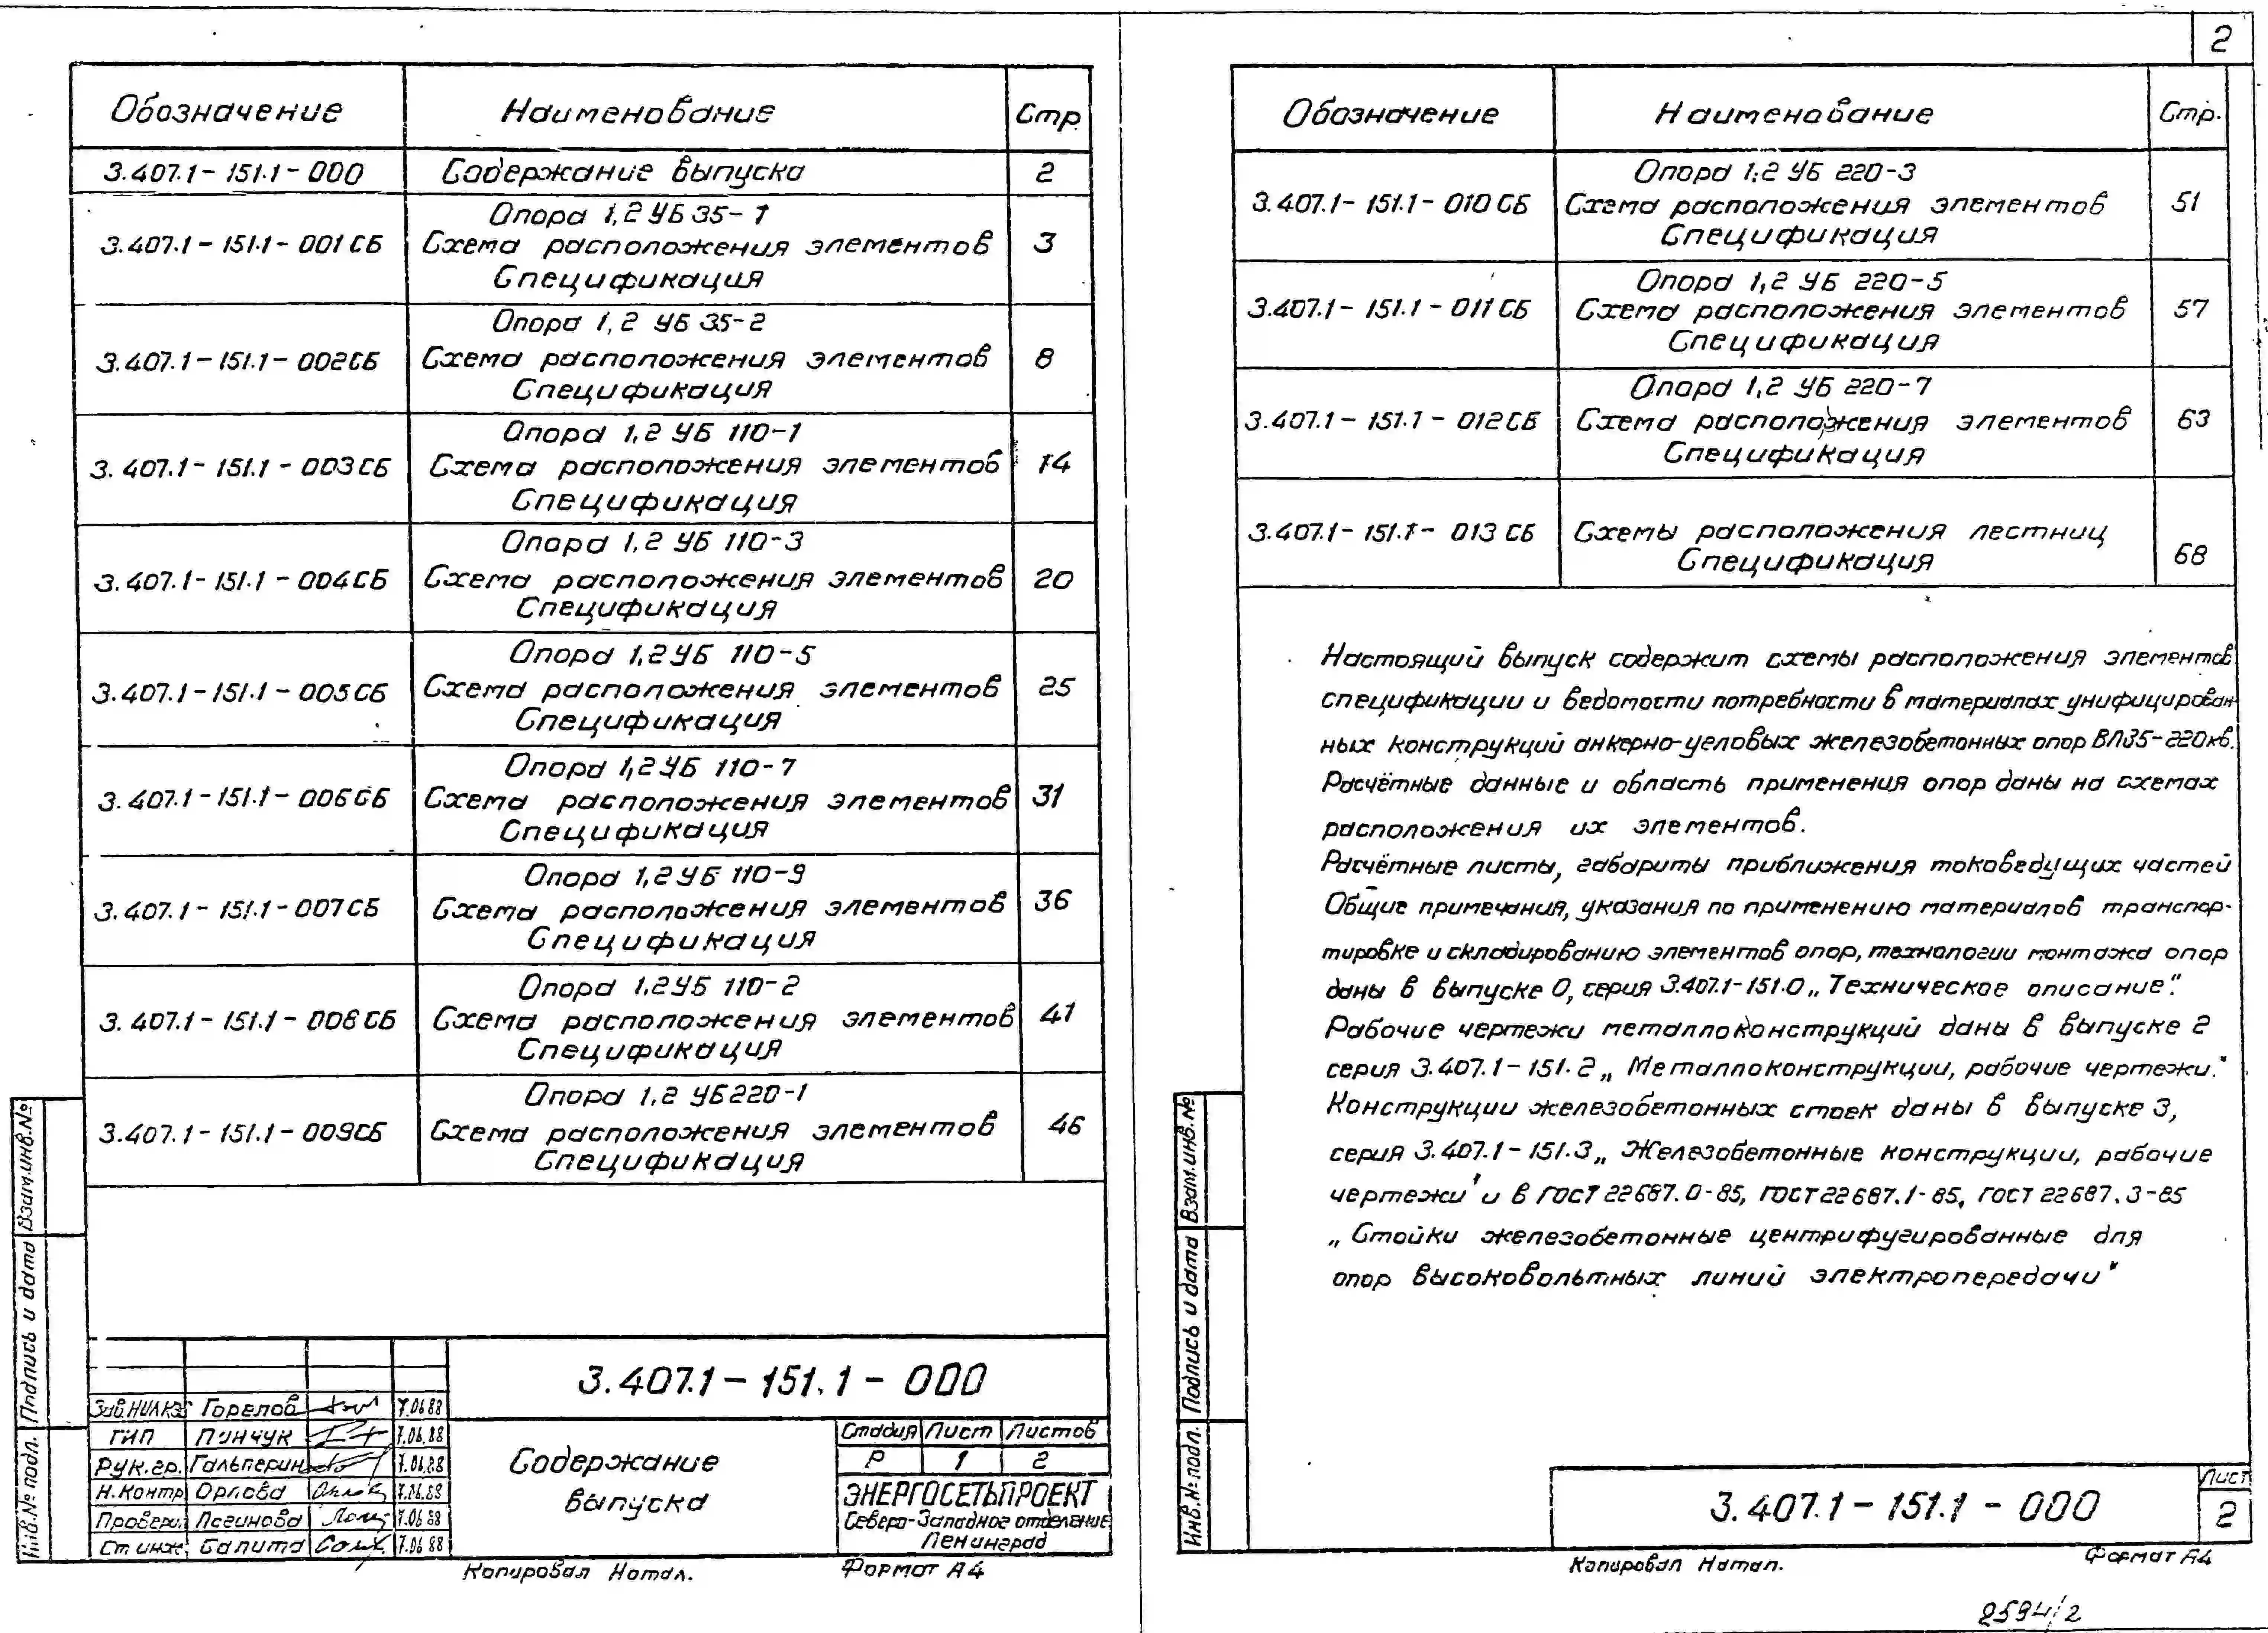 2
Обозначение Наименование Стр
3.407.1-151.1-000 Содержание выпуска 2
Опора 1,2 УБ 35-1
3.407.1-151.1-001СБ Схема расположения элементов 3
Спецификация
Опора 1,2 УБ 35-2
3.407.1-151.1-002СБ Схема расположения элементов 8
Спецификация
Опора 1,2 УБ 110-1
3.407.1-151.1-003СБ Схема расположения элементов 14
Спецификация
Опора 1,2 УБ 110-3
3.407.1-151.1-004СБ Схема расположения элементов 20
Спецификация
Опора 1,2УБ 110-5
3.407.1-151.1-005СБ Схема расположения элементов 25
Спецификация
Опора 1,2УБ 110-7
3.407.1-151.1-006СБ Схема расположения элементов 31
Спецификация
Опора 1,2УБ 110-9
3.407.1-151.1-007СБ Схема расположения элементов 36
Спецификация
Опора 1.2УБ 110-2
3.407.1-151.1-008СБ Схема расположения элементов 41
Спецификация
Опора 1,2 УБ220-1
3.407.1-151.1-009СБ Схема расположения элементов 46
Спецификация
Взам.инв.№
Подпись и дата
Инв.№ подл.
3.407.1-151.1-000
Горелов 7.06.88
ГИП Пинчук 7.06.88
Рук.гр. Гальперин 7.06.88
Н.Контр Орлова 7.06.88
Провери. Логинова 7.06.88
Ст инж. Салита 7.06.88
Содержание
выпуска
Стадия Лист Листов
Р 1 2
ЭНЕРГОСЕТЬПРОЕКТ
Северо-Западное отделение
Ленинград
Копировал Натал. Формат А4
Обозначение Наименование Стр.
Опора 1,2 УБ 220-3
3.407.1-151.1-010СБ Схема расположения элементов 51
Спецификация
Опора 1,2 УБ 220-5
3.407.1-151.1-011СБ Схема расположения элементов 57
Спецификация
Опора 1,2 УБ 220-7
3.407.1-151.1-012СБ Схема расположения элементов 63
Спецификация
3.407.1-151.1-013 СБ Схемы расположения лестниц
Спецификация 68
Настоящий выпуск содержит схемы расположения элементов
спецификации и ведомости потребности в материалах унифицирован-
ных конструкций анкерно-угловых железобетонных опор ВЛ35-220кв.
Расчётные данные и область применения опор даны на схемах
расположения их элементов.
Расчётные листы, габариты приближения токоведущих частей
Общие примечания, указания по применению материалов транспор-
тировке и складированию элементов опор, технологии монтажа опор
даны в выпуске 0, серия 3.407.1-151.0 „Техническое описание".
Рабочие чертежи металлоконструкций даны в выпуске 2
серия 3.407.1-151.2 „Металлоконструкции, рабочие чертежи."
Конструкции железобетонных стоек даны в выпуске 3,
серия 3.407.1-151.3 „Железобетонные конструкции, рабочие
чертежи' и в ГОСТ 22687.0-85, ГОСТ 22687.1-85, ГОСТ 22687.3-85
„Стойки железобетонные центрифугированные для
опор высоковольтных линий электропередачи"
Взам.инв.№
Подпись и дата
Инв.№ подл.
3.407.1-151.1-000
Лист
2
Копировал Натал. Формат А4
2594/2